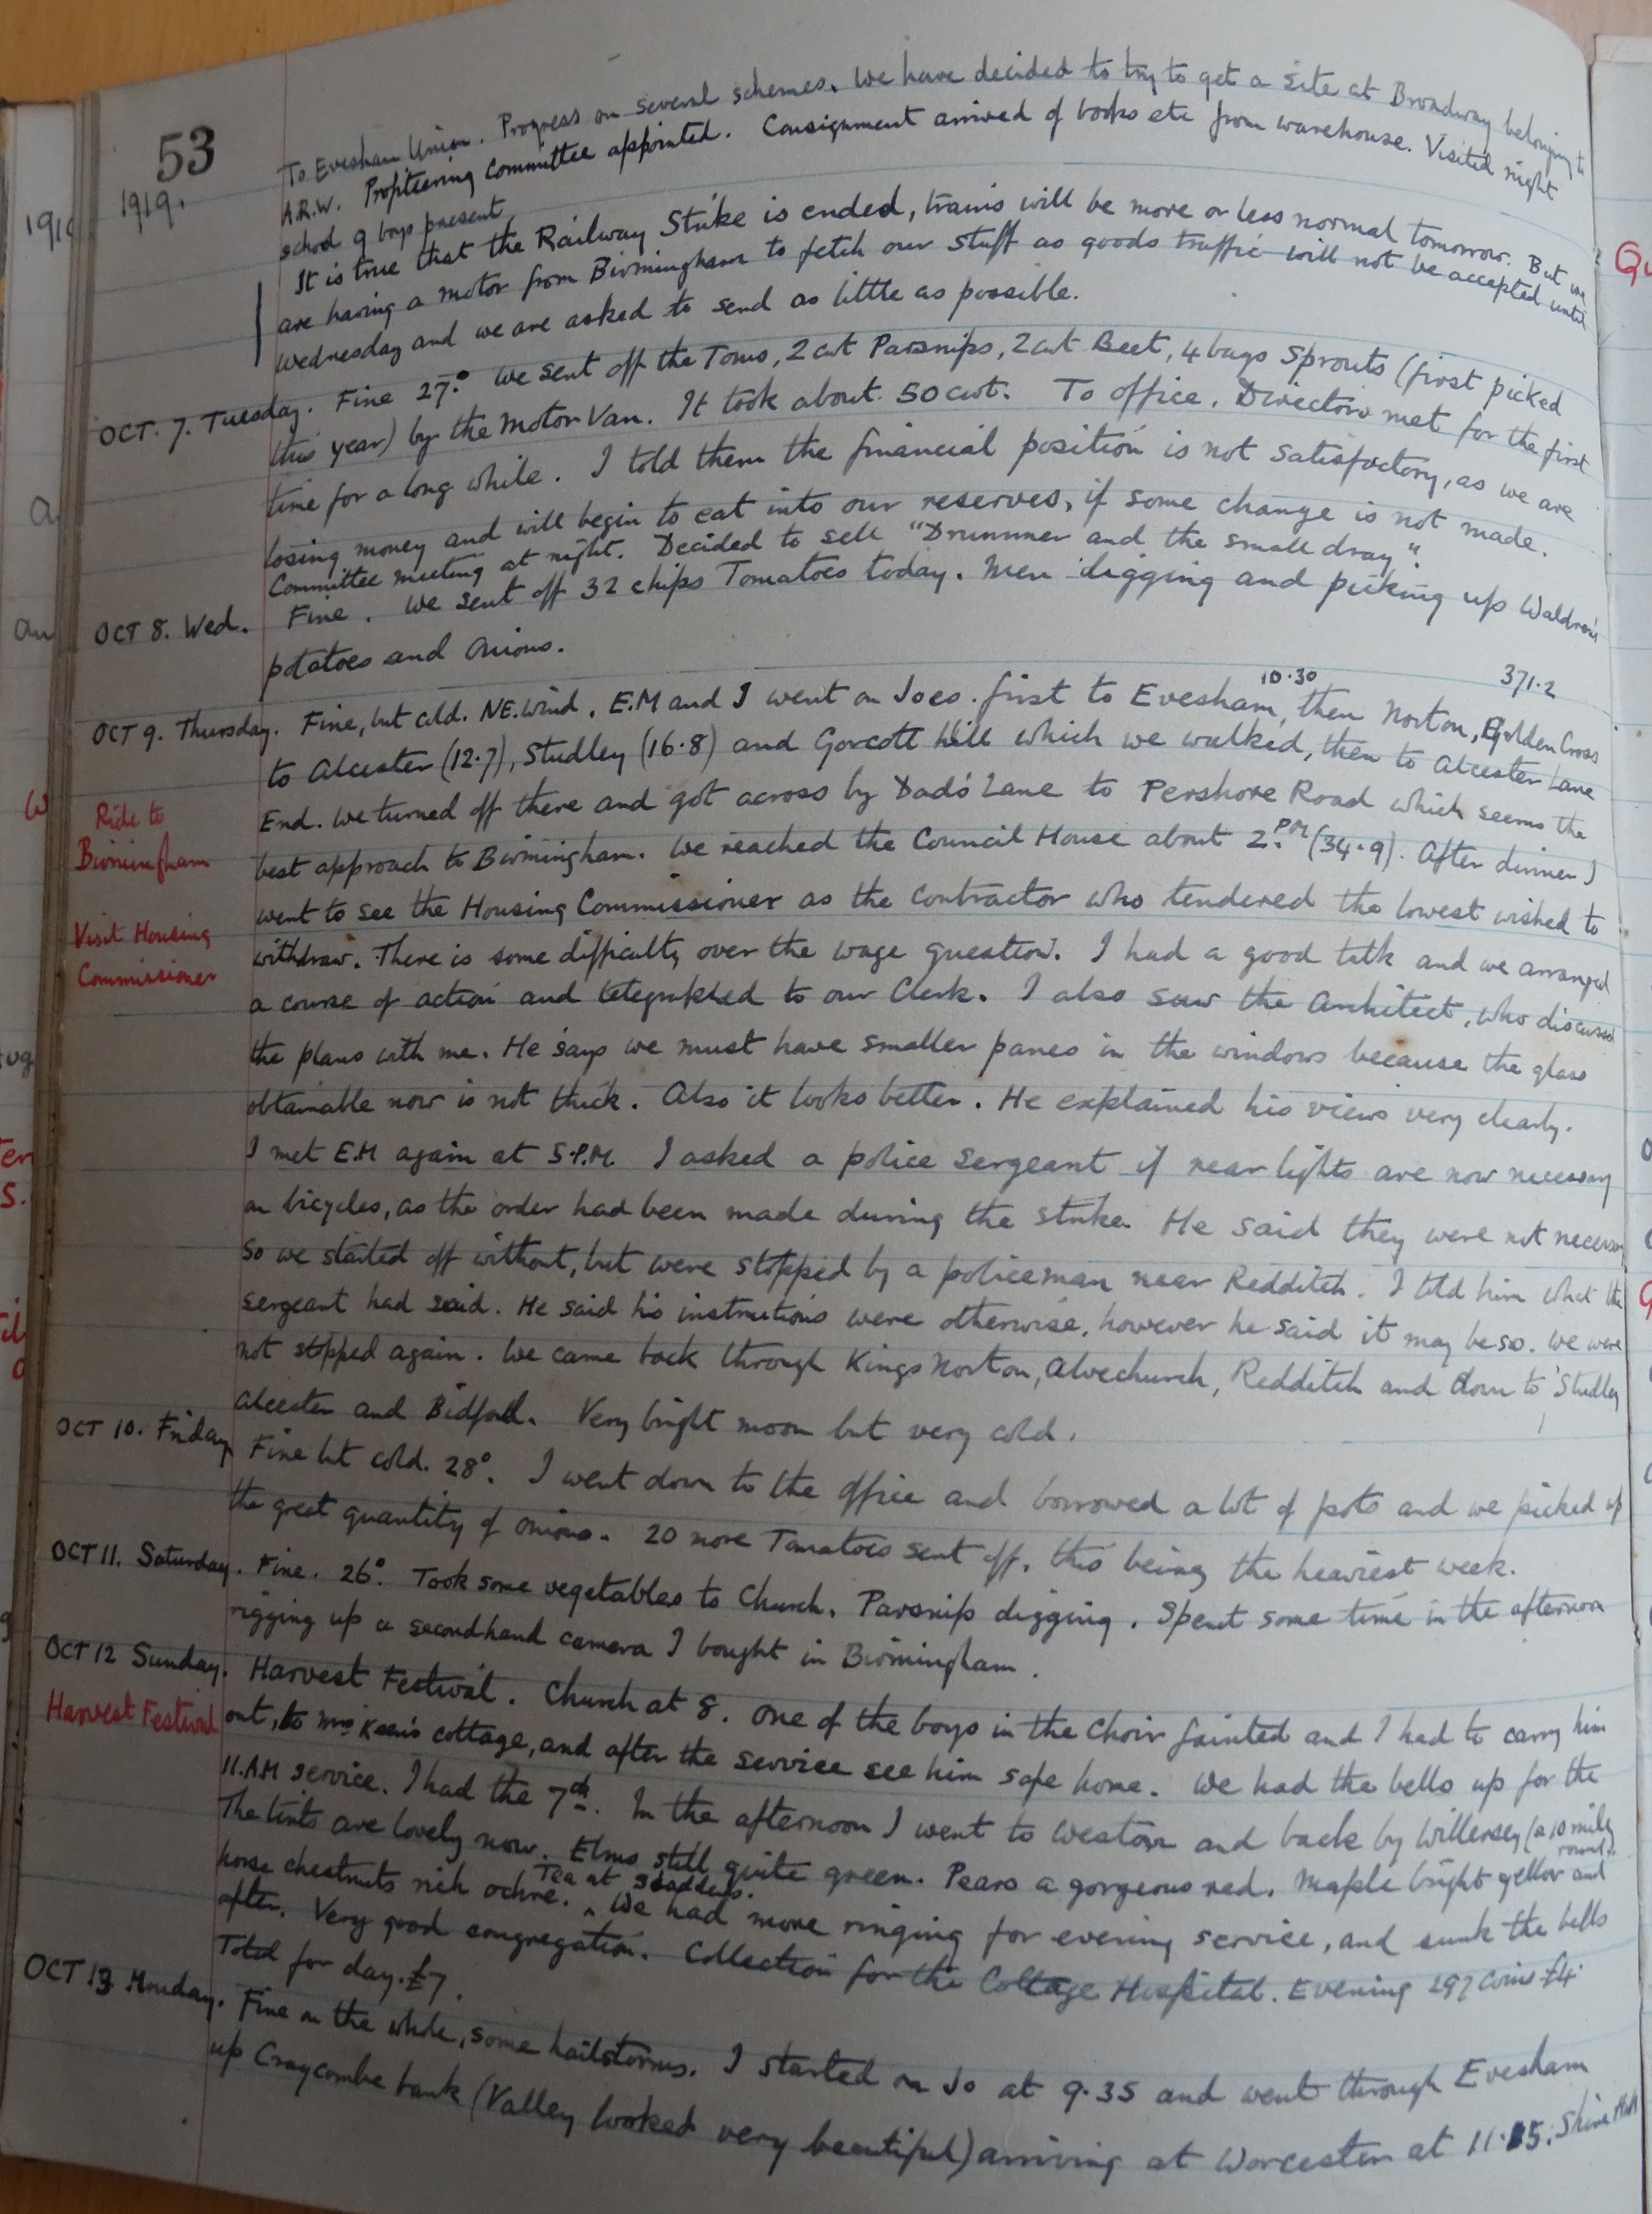 53
1919.
To Evesham Union. Progress on several schemes. We have decided to try to get a site at Broadway belonging to
A.R.W. Profiteering Committee appointed. Consignment arrived of books etc from warehouse. Visited night
school 9 boys present
It is true that the Railway Strike is ended, trains will be more or less normal tomorrow. But we
are having a motor from Birmingham to fetch our stuff as goods traffic will not be accepted until
Wednesday and we are asked to send as little as possible.
OCT. 7. Tuesday. Fine 27.° We sent off the Toms, 2 cwt Parsnips, 2 cwt Beet, 4 bags Sprouts (first picked
this year) by the Motor Van. It took about 50 cwt. To office. Directors met for the first
time for a long while. I told them the financial position is not satisfactory, as we are
losing money and will begin to eat into our reserves, if some change is not made.
Committee meeting at night. Decided to sell "Drummer and the small dray"
OCT 8. Wed. Fine. We sent off 32 chips Tomatoes today. Men digging and picking up Waldron's
potatoes and onions.
10.30 371.2
OCT 9. Thursday. Fine, but cold. NE. Wind. E.M and I went on Joes. first to Evesham, then Norton, Golden Cross
to Alcester (12.7), Studley (16.8) and Gorcott Hill which we walked, then to Alcester Lane
Ride to
Birmingham
End. We turned off there and got across by Dad's Lane to Pershore Road which seems the
best approach to Birmingham. We reached the Council House about 2.PM (34.9). After dinner I
Visit Housing
Commissioner
went to see the Housing Commissioner as the contractor who tendered the lowest wished to
withdraw. There is some difficulty over the wage question. I had a good talk and we arranged
a course of action and telegraphed to our Clerk. I also saw the Architect, who discussed
the plans with me. He says we must have smaller panes in the windows because the glass
obtainable now is not thick. Also it looks better. He explained his views very clearly.
I met E.M again at 5.P.M. I asked a police sergeant if rear lights are now necessary
on bicycles, as the order had been made during the strike. He said they were not necessary
So we started off without, but were stopped by a policeman near Redditch. I told him what the
sergeant had said. He said his instructions were otherwise, however he said it may be so. We were
not stopped again. We came back through Kings Norton, Alvechurch, Redditch and down to Studley
Alcester and Bidford. Very bright moon but very cold.
OCT 10. Friday Fine but cold. 28°. I went down to the office and borrowed a lot of pots and we picked up
the great quantity of onions. 20 more Tomatoes sent off, this being the heaviest week.
OCT 11. Saturday. Fine. 26°. Took some vegetables to Church. Parsnip digging. Spent some time in the afternoon
rigging up a secondhand camera I bought in Birmingham.
OCT 12 Sunday. Harvest Festival. Church at 8. One of the boys in the Choir fainted and I had to carry him
Harvest Festival
out, to Mrs Keen's cottage, and after the service see him safe home. We had the bells up for the
11.AM service. I had the 7th. In the afternoon I went to Weston and back by Willersey (a 10 mile
round).
The tints are lovely now. Elms still quite green. Pears a gorgeous red. Maple bright yellow and
horse chestnuts rich ochre. Tea at . We had more ringing for evening service, and sunk the bells
after. Very good congregation. Collection for the Cottage Hospital. Evening 297 coins £4.
Total for day. £7.
OCT 13 Monday. Fine on the whole, some hailstorms. I started on Jo at 9.35 and went through Evesham
up Craycombe bank (Valley looked very beautiful) arriving at Worcester at 11.15. Shire Hall